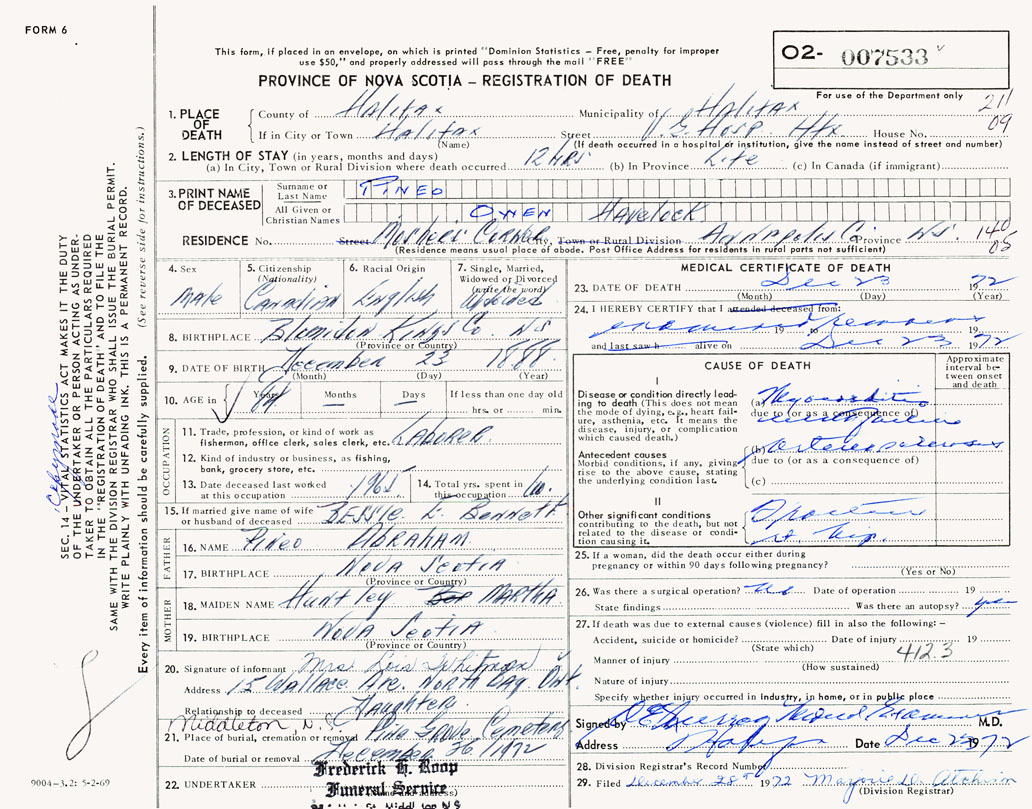 FORM 6
This form, if placed in an envelope, on which is printed "Dominion Statistics – Free, penalty for improper
use $50," and properly addressed will pass through the mail "FREE"
O2- 007533
For use of the Department only
PROVINCE OF NOVA SCOTIA – REGISTRATION OF DEATH
211
09
1. PLACE OF DEATH
County of Halifax Municipality of Halifax
If in City or Town Halifax Street V.G. Hosp. Hfx House No.
(Name) (If death occurred in a hospital or institution, give the name instead of street and number)
2. LENGTH OF STAY (in years, months and days)
(a) In City, Town or Rural Division where death occurred 12 HRS (b) In Province Life (c) In Canada (if immigrant)
3. PRINT NAME OF DECEASED
Surname or Last Name PINEO
All Given or Christian Names OWEN Havelock
RESIDENCE No. Street Moshers Corner City, Town or Rural Division Annapolis Co Province NS
140
05
(Residence means usual place of abode. Post Office Address for residents in rural parts not sufficient)
4. Sex Male
5. Citizenship (Nationality) Canadian
6. Racial Origin English
7. Single, Married, Widowed or Divorced (write the word) Widowed
8. BIRTHPLACE Blomidon Kings Co. NS
(Province or Country)
9. DATE OF BIRTH December 23 1888
(Month) (Day) (Year)
10. AGE in Years 84 Months – Days – If less than one day old
hrs. or min.
OCCUPATION
11. Trade, profession, or kind of work as
fisherman, office clerk, sales clerk, etc. LABORER.
12. Kind of industry or business, as fishing,
bank, grocery store, etc.
13. Date deceased last worked
at this occupation 1965
14. Total yrs. spent in
this occupation
15. If married give name of wife
or husband of deceased BESSIE E. Bennett
FATHER
16. NAME Pineo ABRAHAM.
17. BIRTHPLACE NOVA SCOTIA
(Province or Country)
MOTHER
18. MAIDEN NAME Huntley MARTHA
19. BIRTHPLACE NOVA SCOTIA
(Province or Country)
20. Signature of informant Mrs Lois Whitman
Address 15 Wallace Ave. NORTH BAY Ont.
Relationship to deceased Daughter
Middleton, N.S.
21. Place of burial, cremation or removal Pine Grove Cemetery
Date of burial or removal December 26/1972
22. UNDERTAKER
Frederick H. Roop
Funeral Service
(Name and address)
St. Middleton N S
MEDICAL CERTIFICATE OF DEATH
23. DATE OF DEATH Dec 23 1972
(Month) (Day) (Year)
24. I HEREBY CERTIFY that I attended deceased from:
examined remains 19 to 19
and last saw h alive on Dec 23 1972
CAUSE OF DEATH
Approximate interval between onset and death
I
Disease or condition directly leading to death (This does not mean
the mode of dying, e.g., heart failure, asthenia, etc. It means the
disease, injury, or complication
which caused death.)
(a) Myocarditis
due to (or as a consequence of)
Antecedent causes
Morbid conditions, if any, giving
rise to the above cause, stating
the underlying condition last.
(b) arteriosclerosis
due to (or as a consequence of)
(c)
II
Other significant conditions
contributing to the death, but not
related to the disease or condition causing it.
rt. hip.
25. If a woman, did the death occur either during
pregnancy or within 90 days following pregnancy?
(Yes or No)
26. Was there a surgical operation? No Date of operation 19
State findings Was there an autopsy? yes
27. If death was due to external causes (violence) fill in also the following: –
Accident, suicide or homicide? Date of injury 19
(State which) 412.3
Manner of injury
(How sustained)
Nature of injury
Specify whether injury occurred in industry, in home, or in public place
Signed by Medical Examiner M.D.
Address Halifax Date Dec 23 1972
28. Division Registrar's Record Number
29. Filed December 28th 1972 Marjorie D. Atchison
(Division Registrar)
SEC. 14 – VITAL STATISTICS ACT MAKES IT THE DUTY
OF THE UNDERTAKER OR PERSON ACTING AS UNDER-
TAKER TO OBTAIN ALL THE PARTICULARS REQUIRED
IN THE "REGISTRATION OF DEATH" AND TO FILE THE
SAME WITH THE DIVISION REGISTRAR WHO SHALL ISSUE THE BURIAL PERMIT.
WRITE PLAINLY WITH UNFADING INK. THIS IS A PERMANENT RECORD.
Every item of information should be carefully supplied. (See reverse side for instructions.)
9004-3.2: 5-2-69